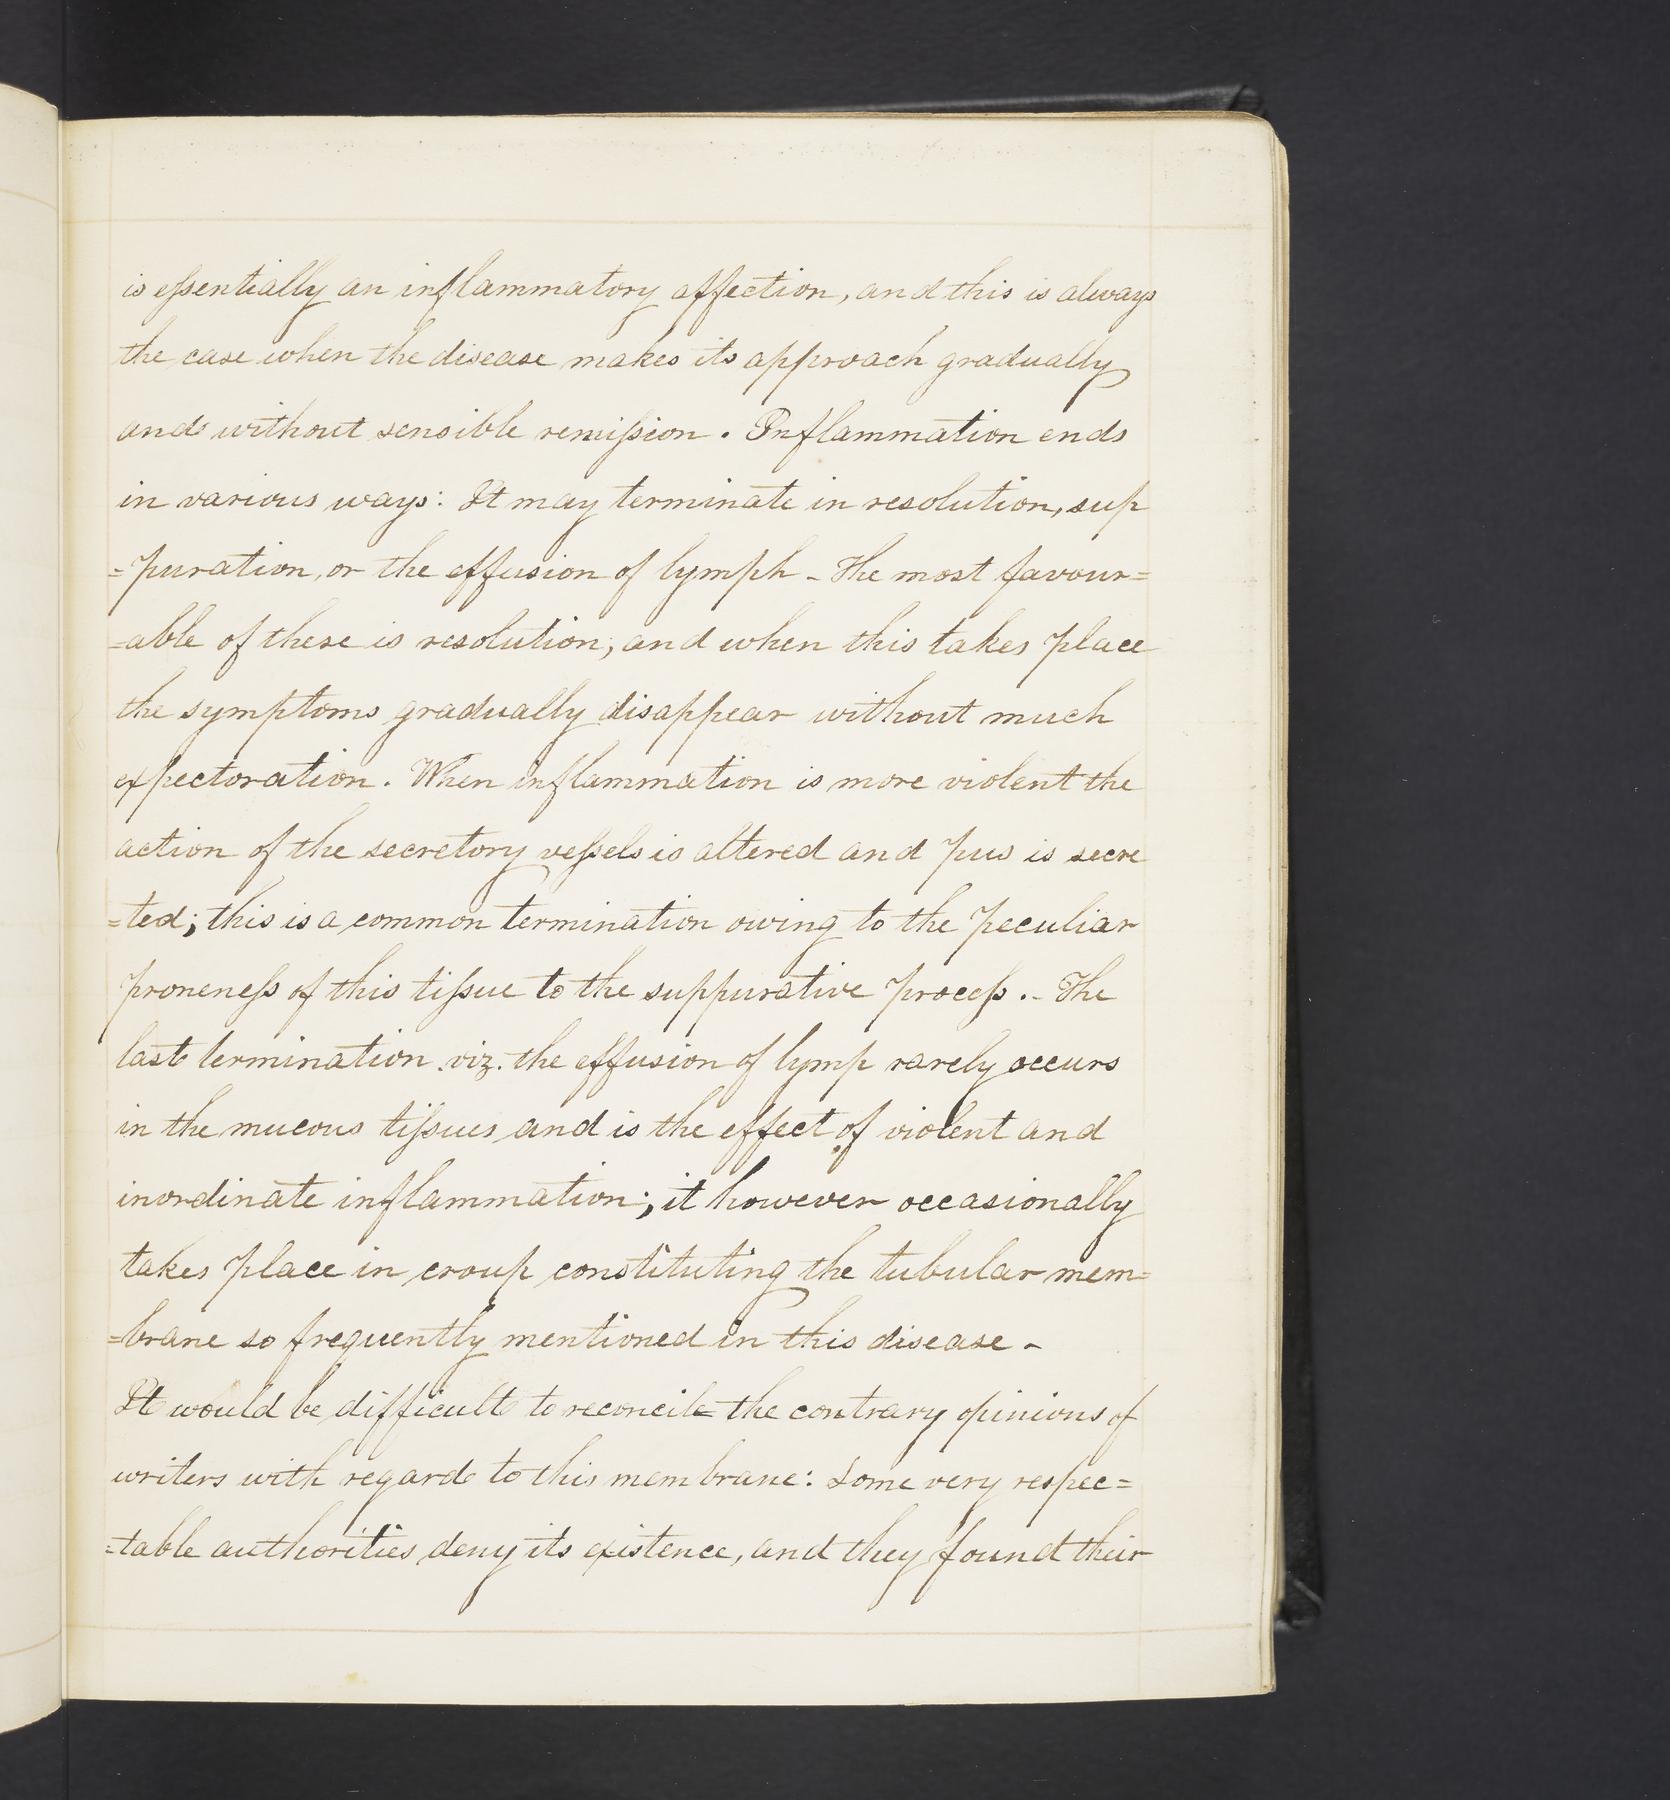 is essentially an inflammatory affection, and this is always
the case when the disease makes its approach gradually
and without sensible remission. Inflammation ends
in various ways: It may terminate in resolution, sup
=puration, or the effusion of lymph - The most favour=
=able of these is resolution; and when this takes place
the symptoms gradually disappear without much
expectoration. When inflammation is more violent the
action of the secretory vessels is altered and pus is secre
=ted; this is a common termination owing to the peculiar
proneness of this tissue to the suppurative process. - The
last termination viz. the effusion of lymp rarely occurs
in the mucous tissues and is the effect of violent and
inordinate inflammation; it however occasionally
takes place in croup constituting the tubular mem=
=brane so frequently mentioned in this disease -
It would be difficult to reconcile the contrary opinions of
writers with regard to this membrane: Some very respec=
=table authorities deny its existence, and they found their